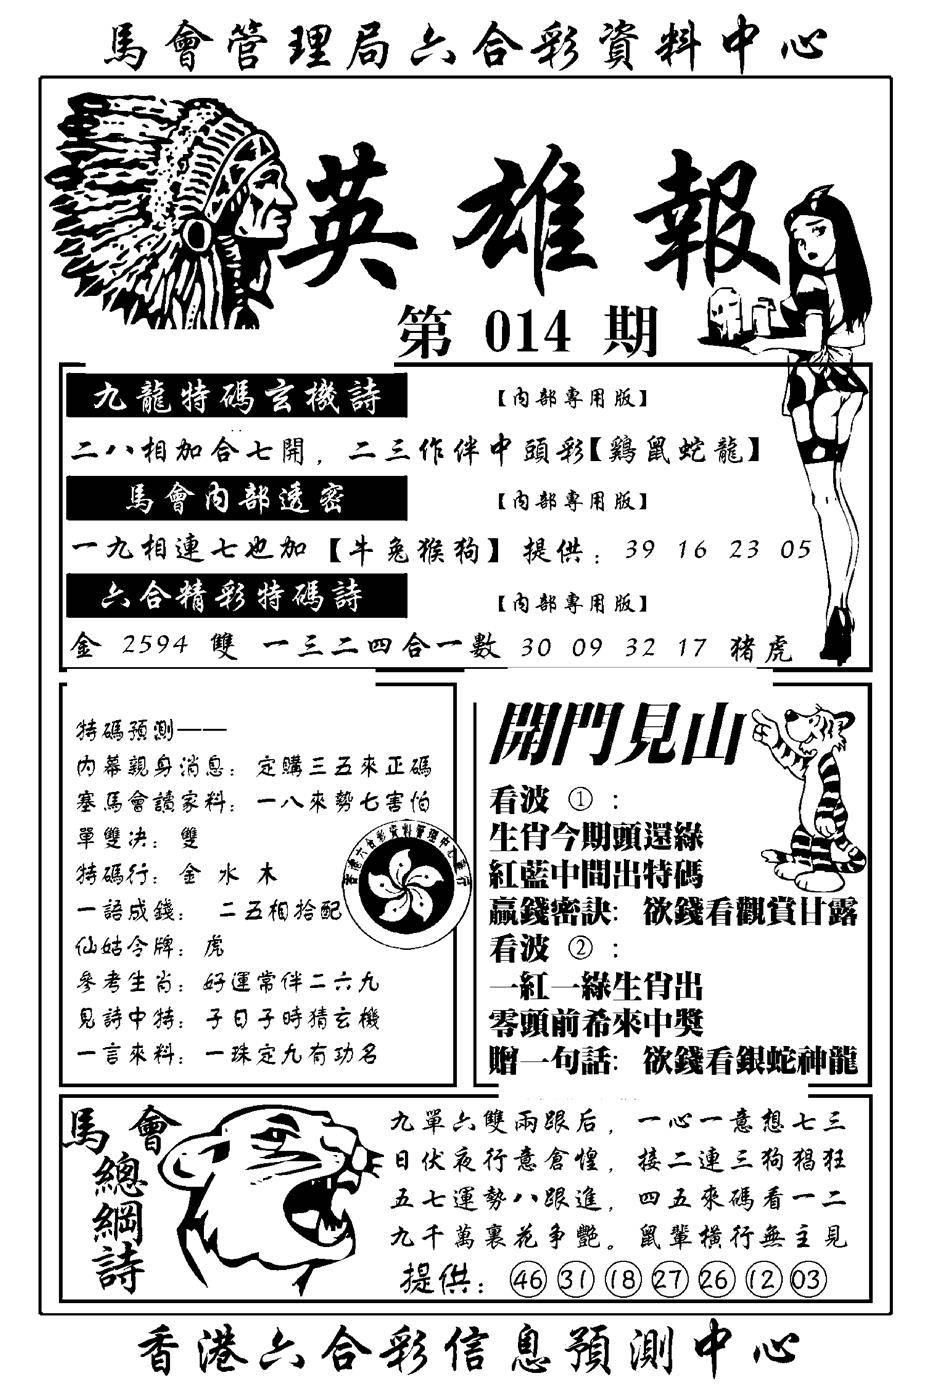 馬會管理局六合彩資料中心
英雄報
第 014 期
九龍特碼玄機詩 【內部專用版】
二八相加合七開，二三作伴中頭彩【鷄鼠蛇龍】
馬會內部透密 【內部專用版】
一九相連七也加【牛兔猴狗】提供：39 16 23 05
六合精彩特碼詩 【內部專用版】
金 2594 雙 一三二四合一數 30 09 32 17 猪虎
特碼預測——
內幕親身消息：定購三五來正碼
塞馬會讀家料：一八來勢七害怕
單雙决：雙
特碼行：金 水 木
一語成錢： 二五相拾配
仙姑令牌：虎
參考生肖：好運常伴二六九
見詩中特：子日子時猜玄機
一言來料：一珠定九有功名
開門見山
看波 ①：
生肖今期頭還綠
紅藍中間出特碼
贏錢密訣：欲錢看觀賞甘露
看波 ②：
一紅一綠生肖出
零頭前希來中獎
贈一句話：欲錢看銀蛇神龍
馬會總綱詩
九單六雙兩跟后，一心一意想七三
日伏夜行意倉惶，接二連三狗猖狂
五七運勢八跟進，四五來碼看一二
九千萬裏花争艷。鼠輩横行無主見
提供：46 31 18 27 26 12 03
香港六合彩信息預測中心